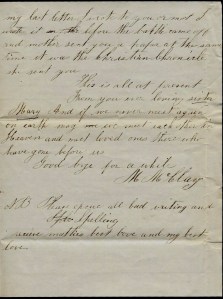 my last letter I sent to you or not I
wrote it on the before the battle
and mother sent you a paper at the same
time it was the Christian Chronicle
she sent you
This is all at present
From your ever loving sister
Mary And if we never meet again
on earth may we meet each other in
Heaven and meet loved ones there who
have gone before us
Good bye for a while
M McClay
NB Please excuse all bad writing and
spelling
receive mothers best love and my best
love